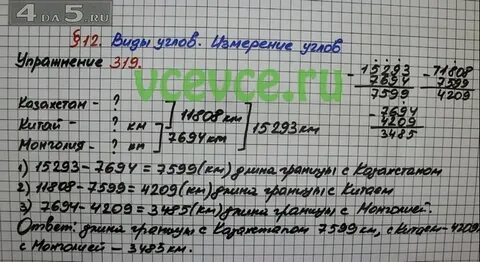 4 DA 5.RU
§12. Виды углов. Измерение углов
Упражнение 319.
vcevce.ru
Казахстан - ?
Китай - ? км
Монголия - ? км
11808 км
7694 км
15293 км
- 15293
7694
7599
- 11808
7599
4209
- 7694
4209
3485
1) 15293 - 7694 = 7599 (км) длина границы с Казахстаном
2) 11808 - 7599 = 4209 (км) длина границы с Китаем
3) 7694 - 4209 = 3485 (км) длина границы с Монголией.
Ответ: длина границы с Казахстаном 7599 км, с Китаем - 4209
с Монголией - 3485 км.